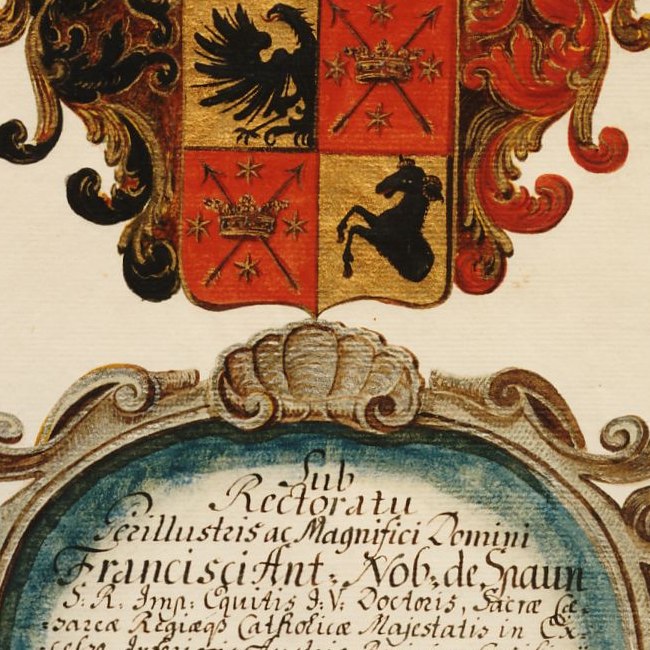 Sub
Rectoratu
Perillustris ac Magnifici Domini
Francisci Ant: Nob: de Spaun
S: R: Imp: Equitis I: V: Doctoris, Sacræ Cæ=
=sareæ Regiæqꝫ Catholicæ Majestatis in Ex=